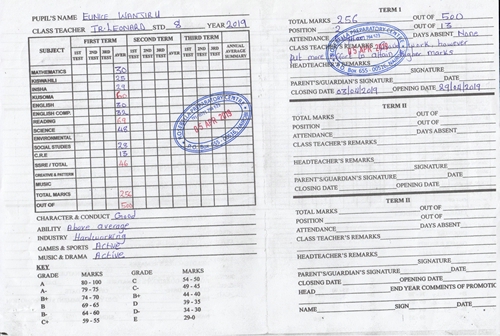 PUPIL'S NAME EUNICE WANJIRU
CLASS TEACHER TR. LEONARD STD. 8 YEAR 2019
SUBJECT FIRST TERM SECOND TERM THIRD TERM
1ST TEST 2ND TEST 3RD TEST AVER 1ST TEST 2ND TEST 3RD TEST AVER 1ST TEST 2ND TEST 3RD TEST AVER ANNUAL AVERAGE SUMMARY
MATHEMATICS 30
KISWAHILI 25
INSHA 29
KUSOMA 60
ENGLISH 30
ENGLISH COMP. 32
READING
SCIENCE 48
ENVIRONMENTAL
SOCIAL STUDIES 28
C.R.E 13
SSRE / TOTAL 46
CREATIVE & PATTERN
MUSIC
TOTAL MARKS
OUT OF 500
CHARACTER & CONDUCT Good
ABILITY Above average
INDUSTRY Hardworking
GAMES & SPORTS Active
MUSIC & DRAMA Active
KEY
GRADE MARKS GRADE MARKS
A 80-100 C 54-50
A- 79-75 C- 49-45
B+ 74-70 B+ 44-40
B 69-65 D 39-35
B- 64-60 D- 34-30
C+ 59-55 E 29-0
05 APR 2019
TERM I
TOTAL MARKS 256 OUT OF 500
POSITION 2 OUT OF 13
ATTENDANCE DAYS ABSENT None
CLASS TEACHER'S REMARKS work, however
put more effort to attain higher marks
HEADTEACHER'S REMARKS
SIGNATURE
PARENT'S/GUARDIAN'S SIGNATURE
CLOSING DATE 03/04/2019 OPENING DATE 29/04/2019
PREPARATORY CENTRE
05 APR 2019
P.O. Box 655 - 00516, NAIROBI
TERM II
TOTAL MARKS OUT OF
POSITION OUT OF
ATTENDANCE DAYS ABSENT
CLASS TEACHER'S REMARKS
HEADTEACHER'S REMARKS
SIGNATURE
PARENT'S/GUARDIAN'S SIGNATURE
CLOSING DATE OPENING DATE
TERM II
TOTAL MARKS OUT OF
POSITION OUT OF
ATTENDANCE DAYS ABSENT
CLASS TEACHER'S REMARKS
HEADTEACHER'S REMARKS
SIGNATURE
PARENT'S/GUARDIAN'S SIGNATURE
CLOSING DATE OPENING DATE
HEAD END YEAR COMMENTS OF PROMOTIO
NAME SIGN DATE